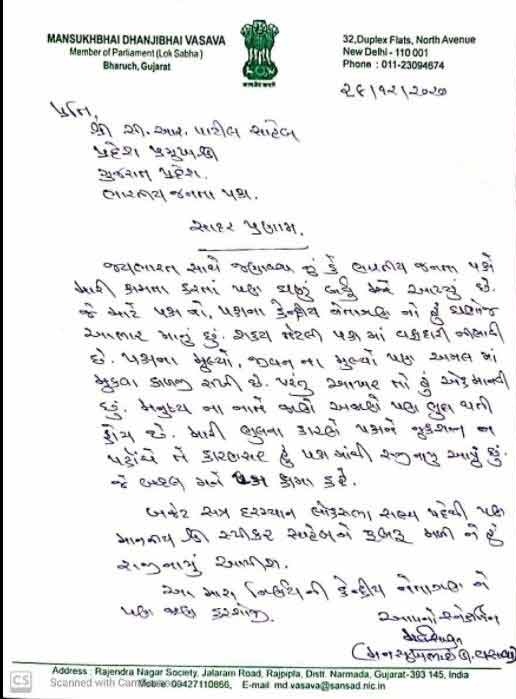 MANSUKHBHAI DHANJIBHAI VASAVA
Member of Parliament (Lok Sabha)
Bharuch, Gujarat
32,Duplex Flats, North Avenue
New Delhi - 110 001
Phone : 011-23094674
૨૮/૧૨/૨૦૨૦
પ્રતિ,
શ્રી સી.આર. પાટીલ સાહેબ
પ્રદેશ પ્રમુખશ્રી
ગુજરાત પ્રદેશ.
ભારતીય જનતા પક્ષ.
સાદર પ્રણામ.
જયભારત સાથે જણાવવાનું કે ભારતીય જનતા પક્ષે
મારી ક્ષમતા કરતાં પણ ઘણું બધું મને આપ્યું છે.
જે માટે પક્ષ નો, પક્ષના કેન્દ્રીય નેતાગણ નો હું ઘણોજ
આભાર માનું છું. શક્ય તેટલી પક્ષ માં વફાદારી નીભાવી
છે. પક્ષના મુલ્યો, જીવન ના મુલ્યો પણ અમલ માં
મુકવા કાળજી રાખી છે. પરંતુ આખરે તો હું એક માનવી
છું. મનુષ્ય ના નાતે જાણે અજાણે પણ ભુલ થતી
હોય છે. મારી ભુલના કારણે પક્ષને નુકશાન ન
પહોંચે તે કારણસર હું પક્ષ માંથી રાજીનામુ આપું છું.
જે બદલ મને પક્ષ ક્ષમા કરે.
બજેટ સત્ર દરમ્યાન લોકસભા સભ્ય પદેથી પણ
માનનીય શ્રી સ્પીકર સાહેબને રૂબરૂ મળી ને હું
રાજીનામું આપીશ.
આ મારા નિર્ણય ની કેન્દ્રીય નેતાગણ ને
પણ જાણ કરશોજી.
આપનો સ્નેહાધિન
(મનસુખભાઈ ડી. વસાવા)
Address : Rajendra Nagar Society, Jalaram Road, Rajpipla, Distt. Narmada, Gujarat-393 145, India
Mobile : 09427110866, E-mail md.vasava@sansad.nic.in
CS Scanned with Cam